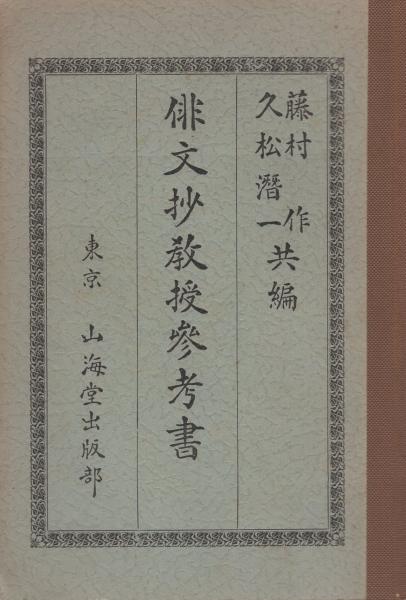 藤村 作
久松潛一共編
俳文抄教授參考書
東京 山海堂出版部